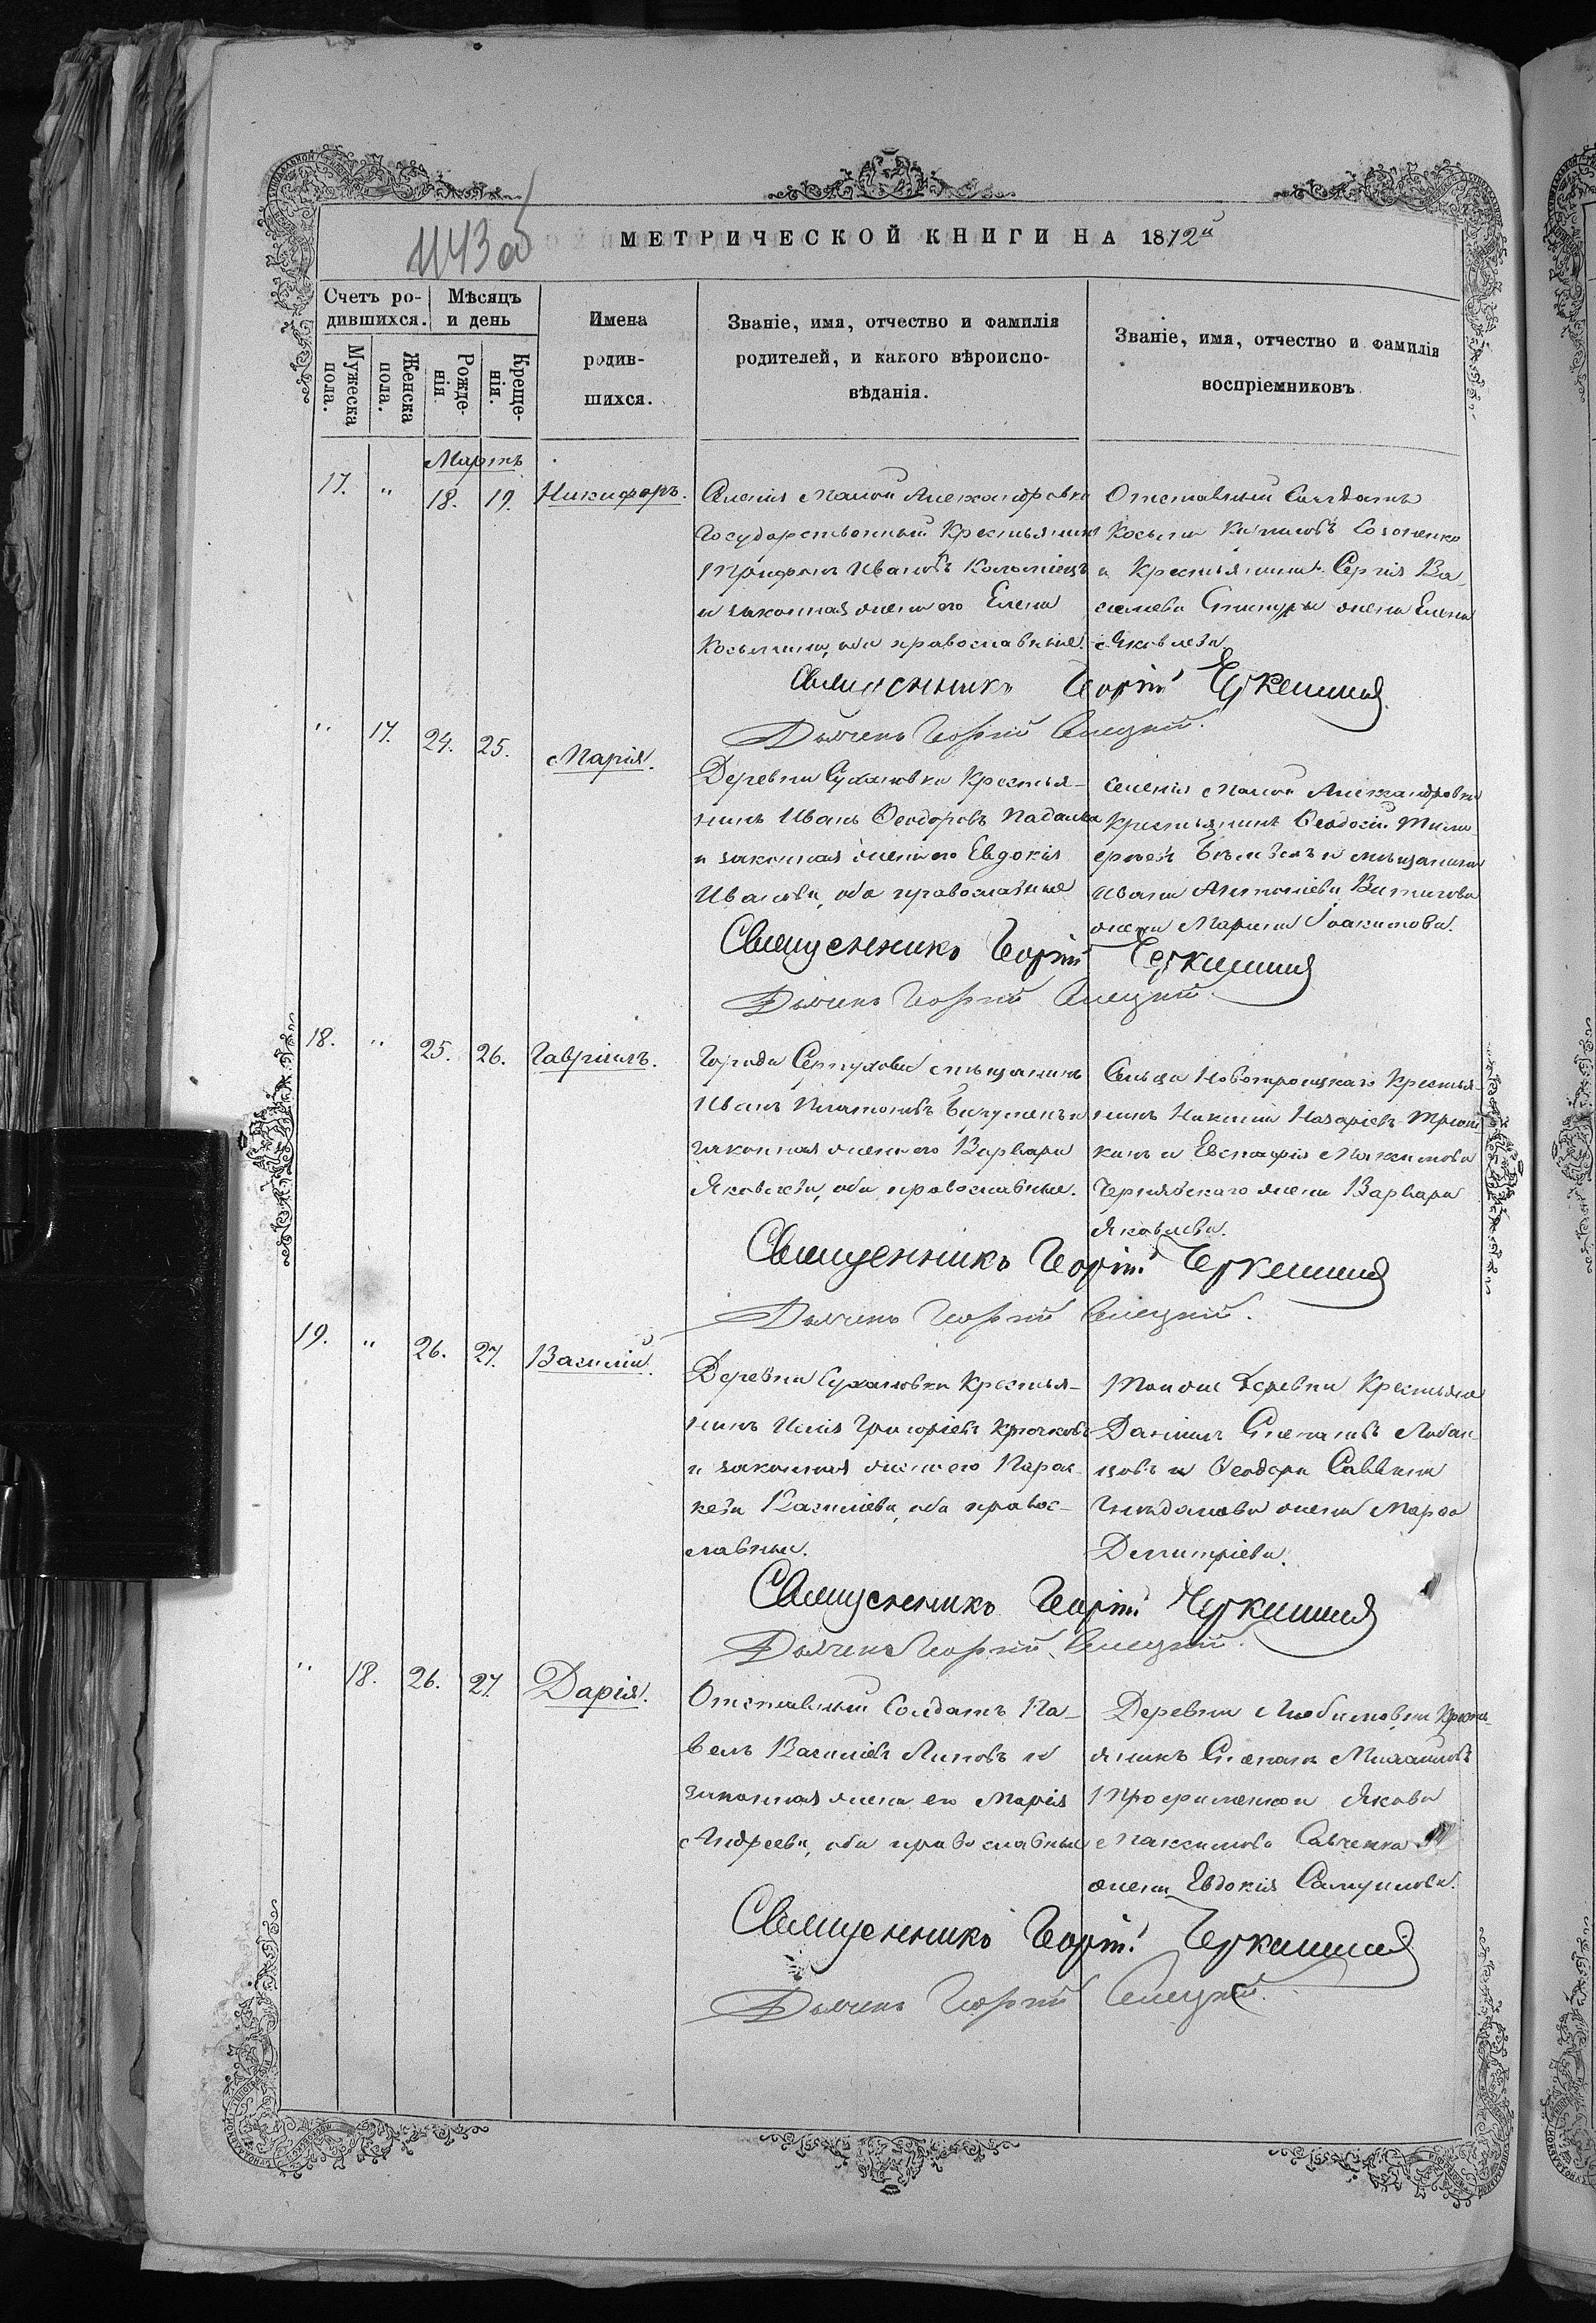 1143 об
МЕТРИЧЕСКОЙ КНИГИ НА 1872й
Счетъ ро-
дившихся.
Мѣсяцъ
и день
Мужеска
пола.
Женска
пола.
Рожде-
нія
Креще-
нія.
Имена
родив-
шихся.
Званіе, имя, отчество и фамилія
родителей, и какого вѣроиспо-
вѣданія.
Званіе, имя, отчество и фамилія
воспріемниковъ
Мартъ
17. " 18. 19. Никифоръ.
Селенія Малой Александровки
Государственный Крестьянинъ
Трифонъ Ивановъ Коломіецъ
и законная жена его Елена
Косьмина, оба православные.
Отставный Солдатъ
Косьма
и Крестьянина Сергія Ва-
сильева жена Елена
Яковлева
Священникъ Георгій
Дьячекъ Георгій
" 17. 24. 25. Марія.
Деревни Сухановки Крестья-
нинъ Иванъ Ѳеодоровъ Падалка
и законная жена его Евдокія
Иванова, оба православные
Селенія Малой Александровки
Крестьянинъ Ѳеодосій
и мѣщанина
Ивана Антоніева
жена Марина Іоакимова.
Священникъ Георгій
Дьячекъ Георгій
18. " 25. 26. Гавріилъ.
Города Серпухова мѣщанинъ
Иванъ Платоновъ и
законная жена его Варвара
Яковлева, оба православные.
Сельца Новотроицкаго Крестья-
нинъ Никита Назаріевъ
и Евстафія Максимова
Чернявскаго жена Варвара
Яковлева.
Священникъ Георгій
Дьячекъ Георгій
19. " 26. 27. Василій.
Деревни Сухановки Крестья-
нинъ Илія Григоріевъ Крючковъ
и законная жена его Парас-
кева Василіева, оба правос-
лавные.
Той же Деревни
Даніилъ Степановъ Лобан-
цовъ и Ѳеодора Саввина
жена Марѳа
Димитріева.
Священникъ Георгій
Дьячекъ Георгій
" 18. 26. 27. Дарія.
Отставный Солдатъ Па-
велъ Василіевъ Липовъ и
законная жена его Марія
Андреева, оба православные
Деревни Любимовки Кресть-
янинъ Степанъ Михаиловъ
Трофименко и Якова
Максимова Савченка
жена Евдокія Самуилова.
Священникъ Георгій
Дьячекъ Георгій